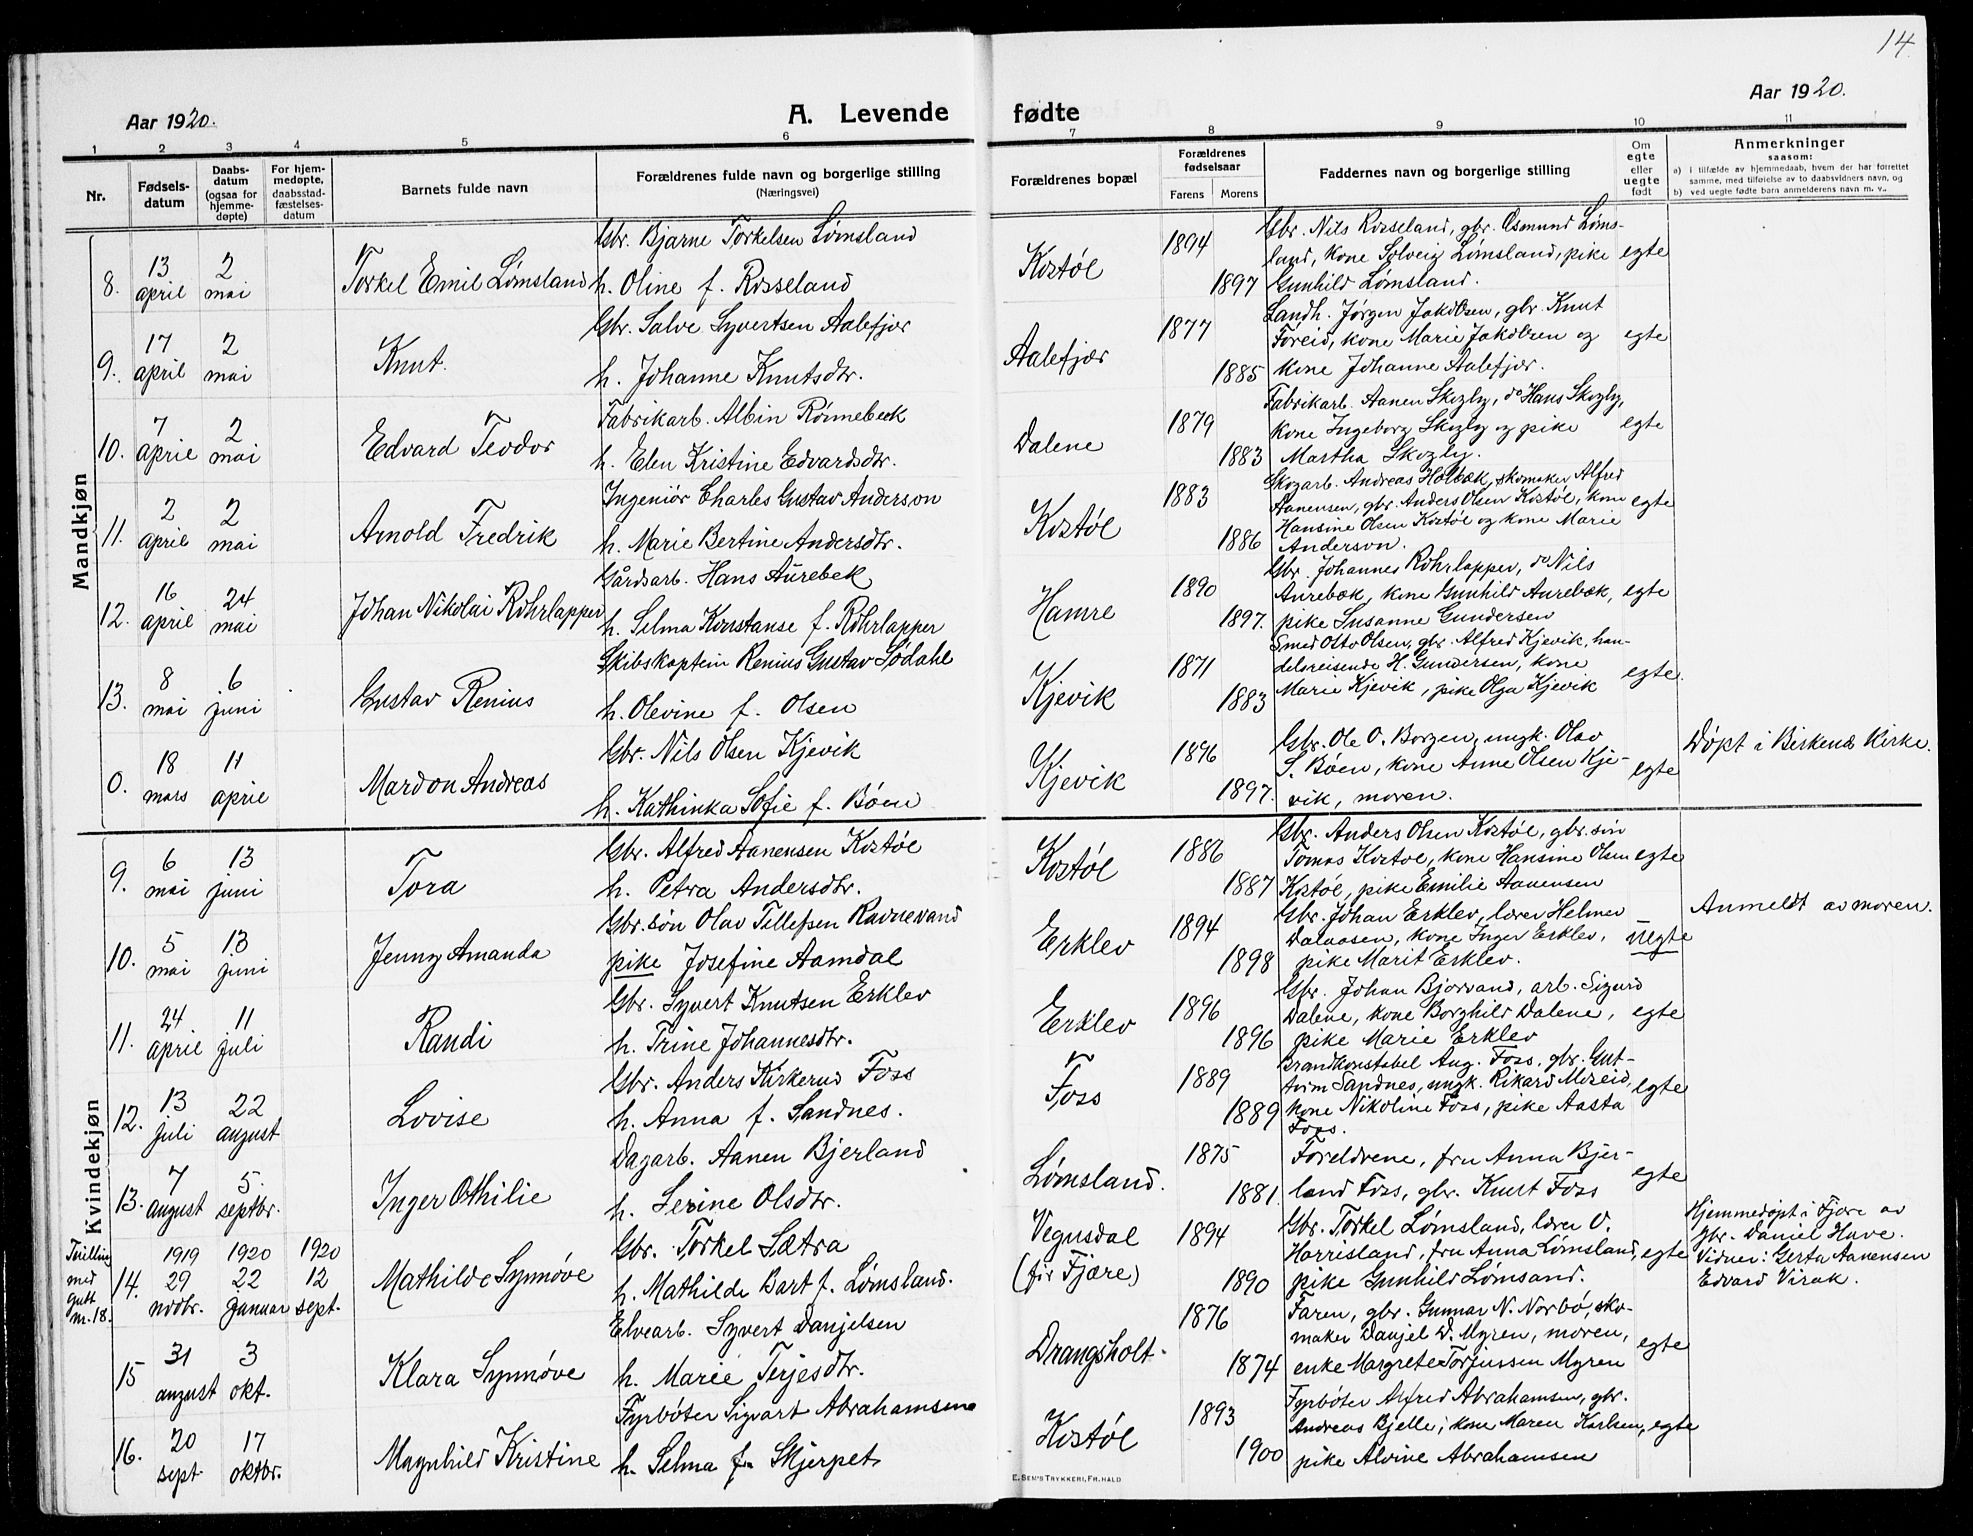 14.
Aar 1920.
A. Levende
fødte
Aar 1920.
1 2 3 4 5 6 7 8 9 10 11
Nr.
Fødsels-
datum
Daabs-
datum
(ogsaa for
hjemme-
døpte)
For hjem-
medøpte,
daabsstad-
fæstelses-
datum
Barnets fulde navn
Forældrenes fulde navn og borgerlige stilling
(Næringsvei)
Forældrenes bopæl
Forældrenes
fødselsaar
Farens Morens
Faddernes navn og borgerlige stilling
Om
egte
eller
uegte
født
Anmerkninger
saasom:
a) i tilfælde av hjemmedaab, hvem der har forrettet
samme, med tilføielse av to daabsvidners navn, og
b) ved uegte fødte barn anmelderens navn m. v..
Mandkjøn
8. 13 april 2 mai Torkel Emil Lømsland
Gbr. Bjarne Torkelsen Lømsland
h. Oline f. Rosseland
Kostøl 1894 1897
Gbr. Nils Rosseland, gbr. Osmund Løms-
land, kone Solveig Lømsland, pike
Gunhild Lømsland.
egte
9. 17 april 2 mai Knut
Gbr. Salve Syvertsen Aalefjær
h. Johanne Knutsdtr.
Aalefjær 1877 1885
Landh. Jørgen Jakobsen, gbr. Knut
Føreid, kone Marie Jakobsen og
kone Johanne Aalefjær.
egte
10. 7 april 2 mai Edvard Teodor
Fabrikarb. Albin Rönnebeck
h. Elen Kristine Edvardsdtr.
Dalene 1879 1883
Fabrikarb. Aanen Skogly, do Hans Skogly,
kone Ingeborg Skogly og pike
Martha Skogly.
egte
11. 2 april 2 mai Arnold Fredrik
Ingeniör Charles Gustav Anderson
h. Marie Bertine Andersdtr.
Kostøl 1883 1886
Skogarb. Andreas Holbæk, skomaker Alfred
Aanensen, gbr. Anders Olsen Kostøl, kone
Hansine Olsen Kostøl og kone Marie
Anderson.
egte
12. 16 april 24 mai Johan Nikolai Rohrlapper
Gårdsarb. Hans Aurebek
h. Selma Konstanse f. Röhrlapper
Hamre 1890 1897.
Gbr. Johannes Rohrlapper, do Nils
Aurebæk, kone Gunhild Aurebæk,
pike Susanne Gundersen
egte
13. 8 mai 6 juni Gustav Renius
Skibskaptein Renius Gustav Södahl
h. Olevine f. Olsen
Kjevik 1871 1883
Smed Otto Olsen, gbr. Alfred Kjevik, han-
delsreisende H. Gundersen, kone
Marie Kjevik, pike Olga Kjevik
egte.
0. 18 mars 11 april Mardon Andreas
Gbr. Nils Olsen Kjevik
h. Kathinka Sofie f. Bøen
Kjevik 1896 1897.
Gbr. Ole O. Borgen, ungk. Olav
S. Bøen, kone Anne Olsen Kje-
vik, moren.
egte
Døpt i Birkenes Kirke.
Kvindekjøn
9. 6 mai 13 juni Tora
Gbr. Alfred Aanensen Kostøl
h. Petra Andersdtr.
Kostøl 1886 1887
Gbr. Anders Olsen Kostøl, gbr. sön
Tomas Kostøl, kone Hansine Olsen
Kostøl, pike Emilie Aanensen
egte
10. 5 mai 13 juni Jenny Amanda
Gbr. søn Olav Tellefsen Ravnevand
pike Josefine Aamdal
Erklev 1894 1898
Gbr. Johan Erklev, lærer Helmer
Dalaasen, kone Inger Erklev,
pike Marit Erklev.
uegte
Anmeldt av moren.
11. 24 april 11 juli Randi
Gbr. Syvert Knutsen Erklev
h. Trine Johannesdtr.
Erklev 1896 1896
Gbr. Johan Bjorvand, arb. Sigurd
Dalene, kone Borghild Dalene,
pike Marie Erklev
egte
12. 13 juli 22 august Lovise
Gbr. Anders Kirkerud Foss
h. Anna f. Sandnes.
Foss 1889 1889
Brandkonstabel Aug. Foss, gbr. Gut-
torm Sandnes, ungk. Rikard Moreid,
kone Nikoline Foss, pike Aasta
Foss.
egte
13. 7 august 5. septbr. Inger Othilie
Dagarb. Aanen Bjerland
h. Serine Olsdtr.
Lømsland. 1875 1881.
Foreldrene, fru Anna Bjer-
land Foss, gbr. Knut Foss
egte
Tvilling
med
gutt
nr. 18.
14. 1919 29 novbr. 1920 22 januar 1920 12 sept. Mathilde Synnøve
Gbr. Torkel Sætra
h. Mathilde Bart f. Lømsland.
Vegusdal
(før Fjære) 1894 1890
Gbr. Torkel Lømsland, lærer O.
Harresland, fru Anna Lømsland,
pike Gunhild Lømsand.
egte
Hjemmedøpt i Fjære av
gbr. Daniel Huve.
Vidner: Gerta Aanensen
Edvard Virak.
15 31 august 3 okt. Klara Synnøve
Elvearb. Syvert Danjelsen
h. Marie Terjesdtr.
Drangsholt. 1876 1874
Faren, gbr. Gunnar N. Norbø, sko-
maker Danjel D. Myren, moren,
enke Margrete Torjussen Myren
egte
16. 20 sept. 17 oktbr. Magnhild Kristine
Fyrbøter Sigvart Abrahamsen
h. Selma f. Skjerpet
Kostøl 1893 1900
Fyrbøter Alfred Abrahamsen, gbr.
Andreas Bjelle, kone Maren Karlsen,
pike Alvine Abrahamsen
egte
E. SEM'S TRYKKERI, FR.HALD